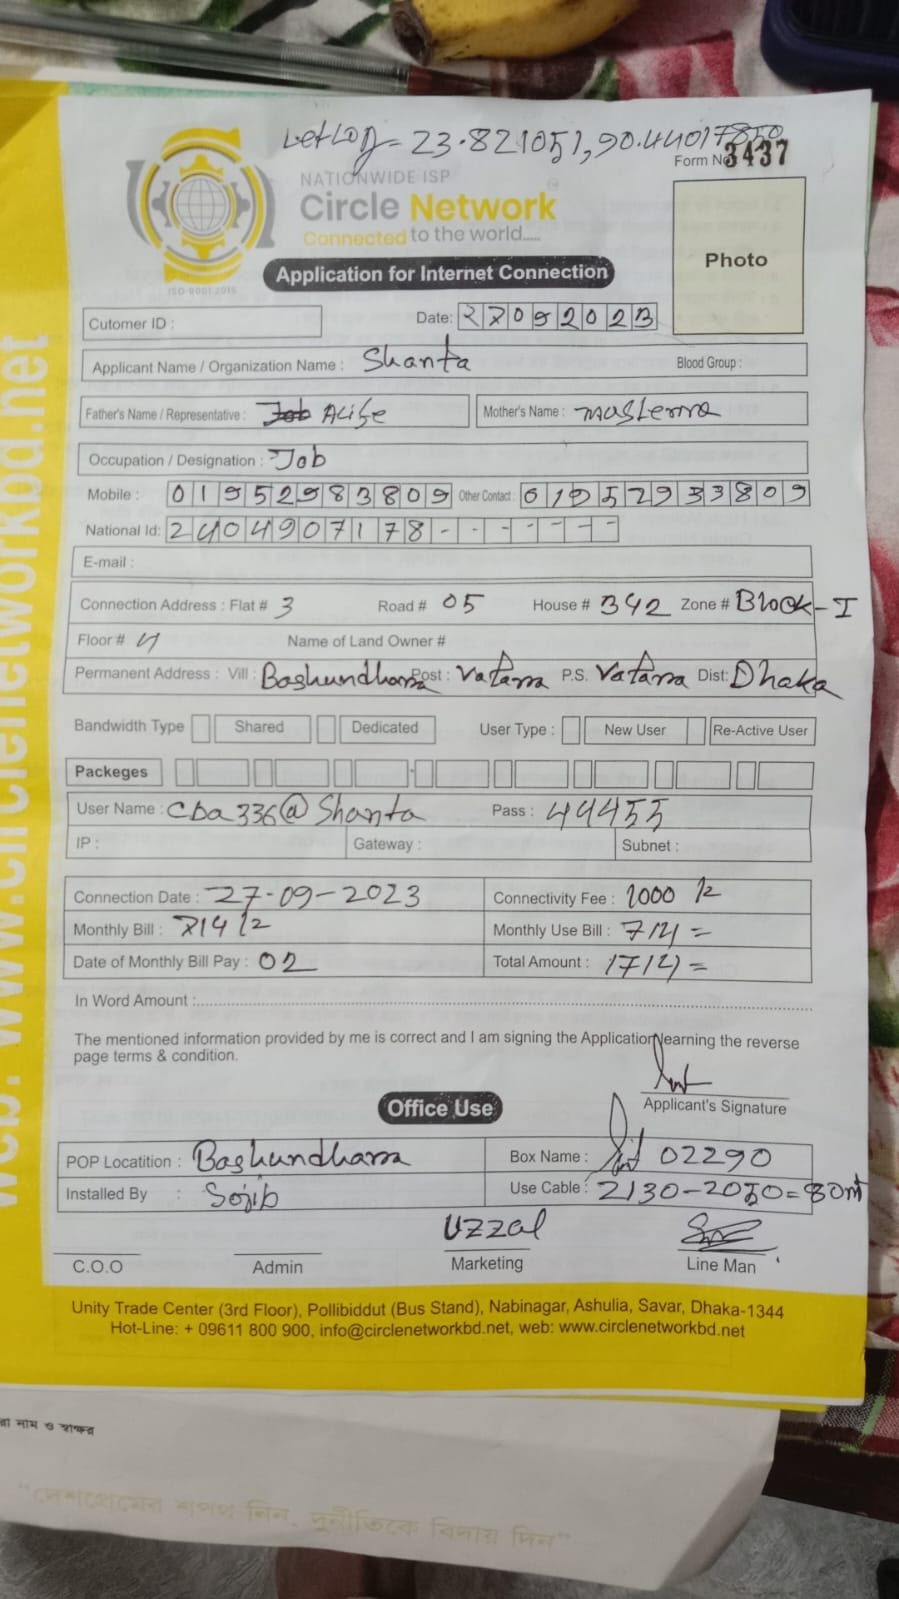 Let Log = 23.821051, 90.44017850
Form No 3437
NATIONWIDE ISP
Circle Network
Connected to the world.....
ISO 9001:2015
Application for Internet Connection
Photo
Cutomer ID :
Date: 27092023
Applicant Name / Organization Name : Shanta Blood Group :
Father's Name / Representative : Job Alife Mother's Name : Maslema
Occupation / Designation : Job
Mobile : 01952983809 Other Contact : 01952933809
National Id: 2404907178 - - - - - - -
E-mail :
Connection Address : Flat # 3 Road # 05 House # 342 Zone # Block-I
Floor # 4 Name of Land Owner #
Permanent Address : Vill : Bashundhara Post : Vatara P.S. Vatara Dist: Dhaka
Bandwidth Type Shared Dedicated User Type : New User Re-Active User
Packeges
User Name : cba336@Shanta Pass : 44455
IP : Gateway : Subnet :
Connection Date : 27-09-2023 Connectivity Fee : 1000 /=
Monthly Bill : 714 /= Monthly Use Bill : 714 =
Date of Monthly Bill Pay : 02 Total Amount : 1714 =
In Word Amount :
The mentioned information provided by me is correct and I am signing the Application learning the reverse
page terms & condition.
Applicant's Signature
Office Use
POP Locatition : Bashundhara Box Name : 02290
Installed By : Sojib Use Cable : 2130-2050=80m
Uzzal
C.O.O Admin Marketing Line Man
Unity Trade Center (3rd Floor), Pollibiddut (Bus Stand), Nabinagar, Ashulia, Savar, Dhaka-1344
Hot-Line: + 09611 800 900, info@circlenetworkbd.net, web: www.circlenetworkbd.net
web: www.circlenetworkbd.net
নাম ও স্বাক্ষর
"দেশপ্রেমের শপথ নিন, দুর্নীতিকে বিদায় দিন"